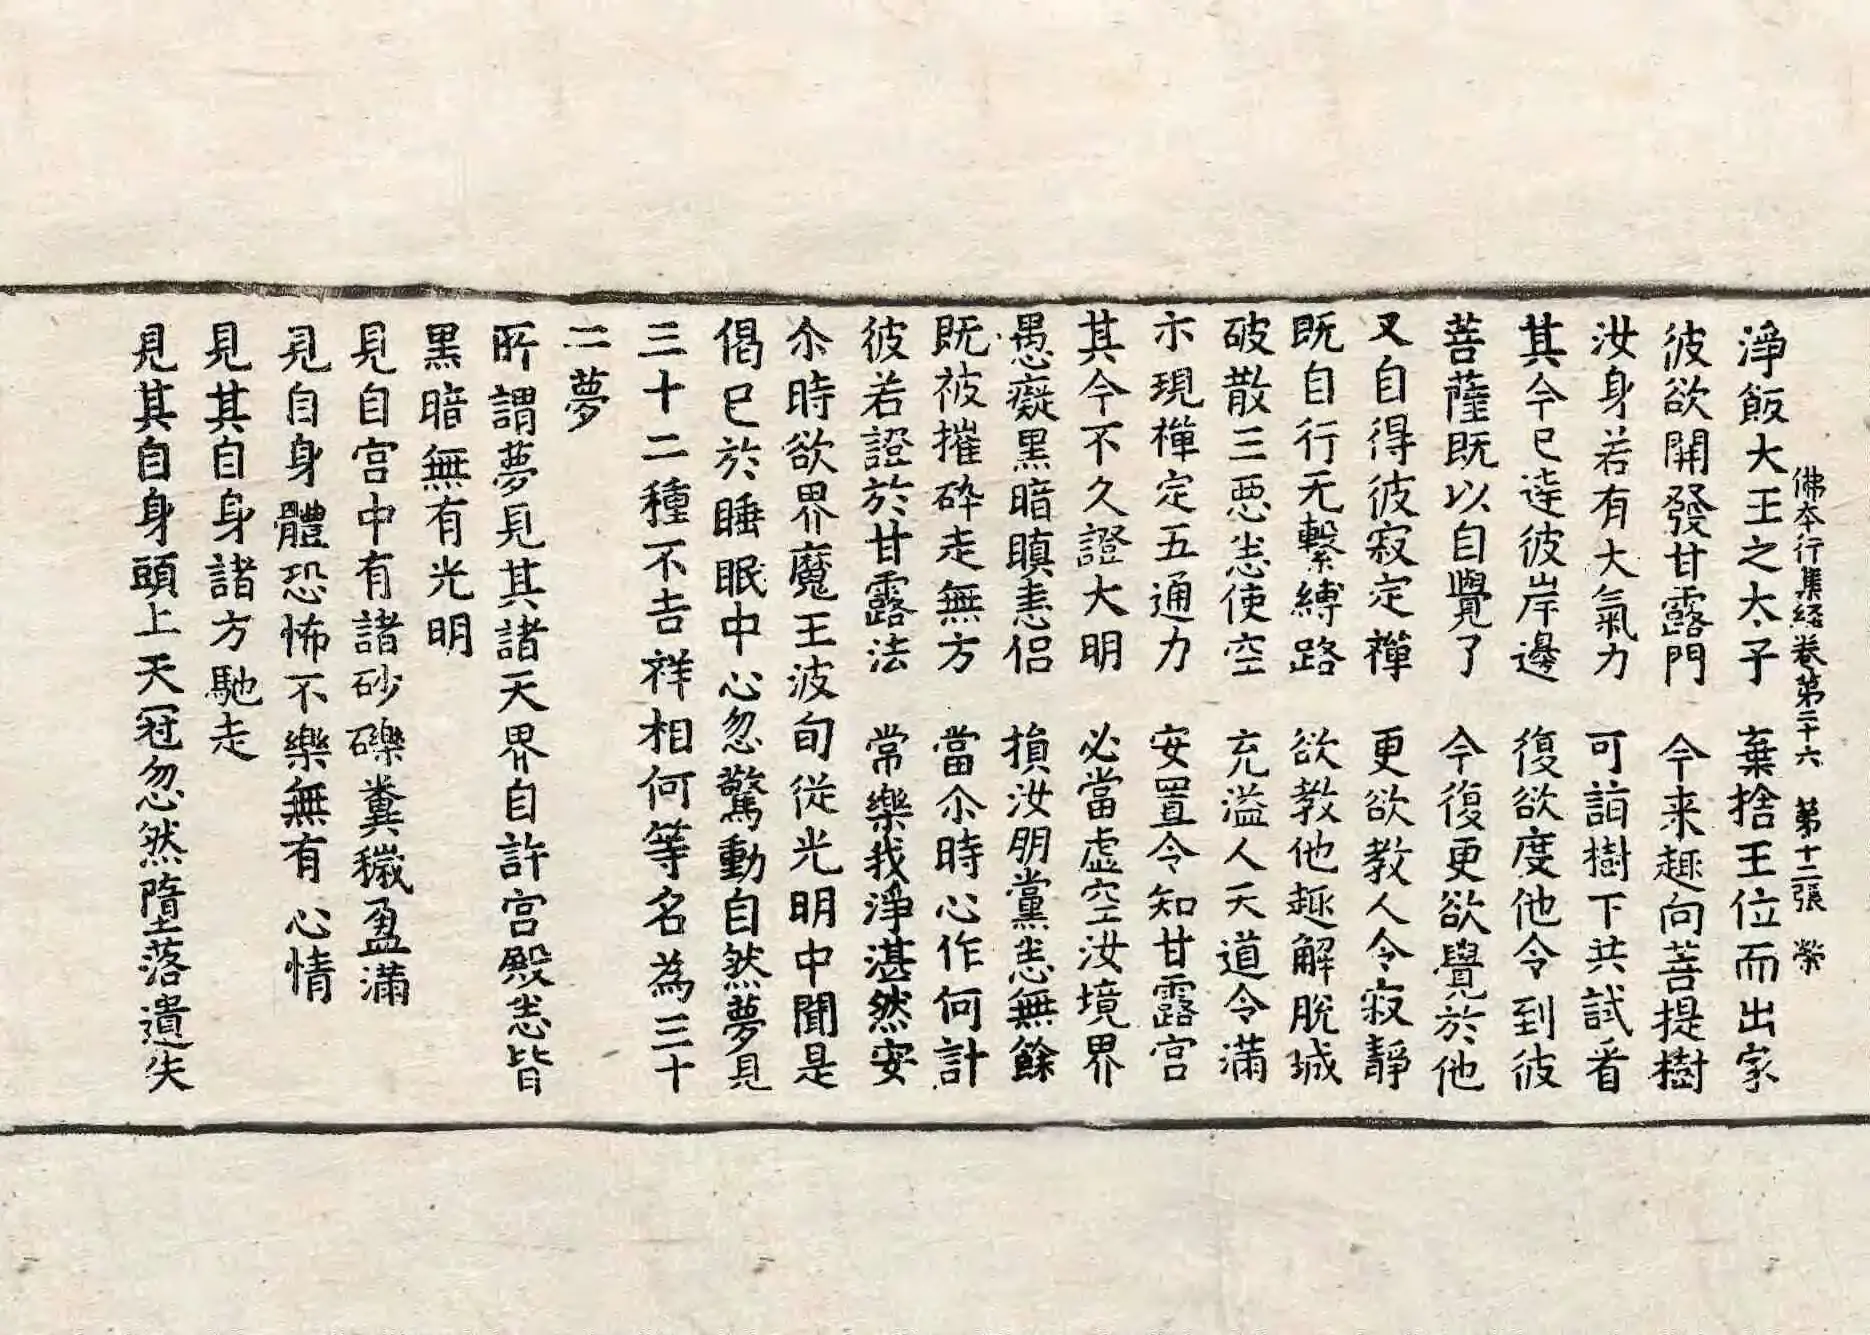 佛本行集經卷第二十六 第十二張 榮
淨飯大王之太子 棄捨王位而出家
彼欲開發甘露門 今来趣向菩提樹
汝身若有大氣力 可詣樹下共試看
其今已逹彼岸邊 復欲度他令到彼
菩薩既以自覺了 今復更欲覺於他
又自得彼寂定禪 更欲教人令寂靜
既自行无繫縛路 欲教他趣解脫城
破散三惡悉使空 充溢人天道令滿
示現禪定五通力 安置令知甘露宮
其今不久證大明 必當虛空汝境界
愚癡黑暗瞋恚侶 損汝朋黨悉無餘
既被摧碎走無方 當尒時心作何計
彼若證於甘露法 常樂我淨湛然安
尒時欲界魔王波旬從光明中聞是
偈已於睡眠中心忽驚動自然夢見
三十二種不吉祥相何等名為三十
二夢
所謂夢見其諸天界自許宮殿悉皆
黑暗無有光明
見自宮中有諸砂礫糞穢盈滿
見自身體恐怖不樂無有心情
見其自身諸方馳走
見其自身頭上天冠忽然墮落遺失